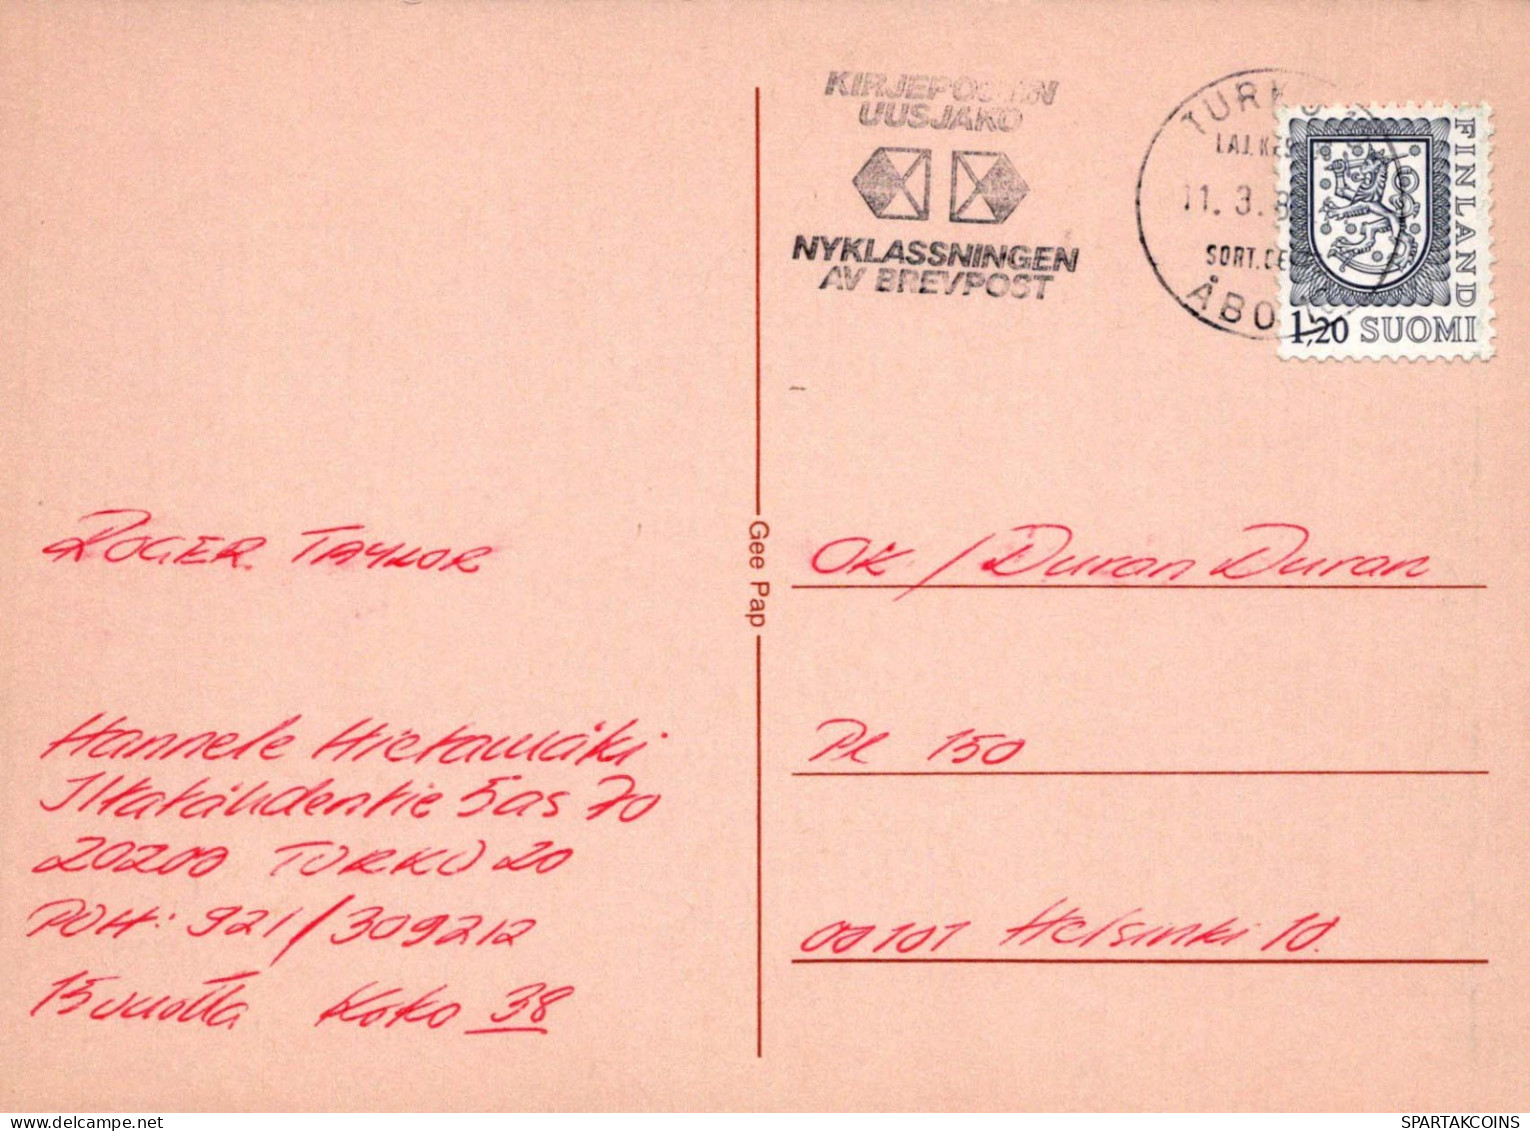 KIRJEPOSTIN
UUSJAKO
NYKLASSNINGEN
AV BREVPOST
TURKU
LAJ.KES
11. 3. 8
SORT.CE
ÅBO
FINLAND
1,20 SUOMI
ROGER TAYLOR
Hannele Hietamäki
Iltatähdentie 5 as 70
20200 TURKU 20
PUH: 921/309212
15 vuotta Koko 38
Gee Pap
OK / Duran Duran
PL 150
00101 Helsinki 10.
delcampe.net
SPARTAKCOINS